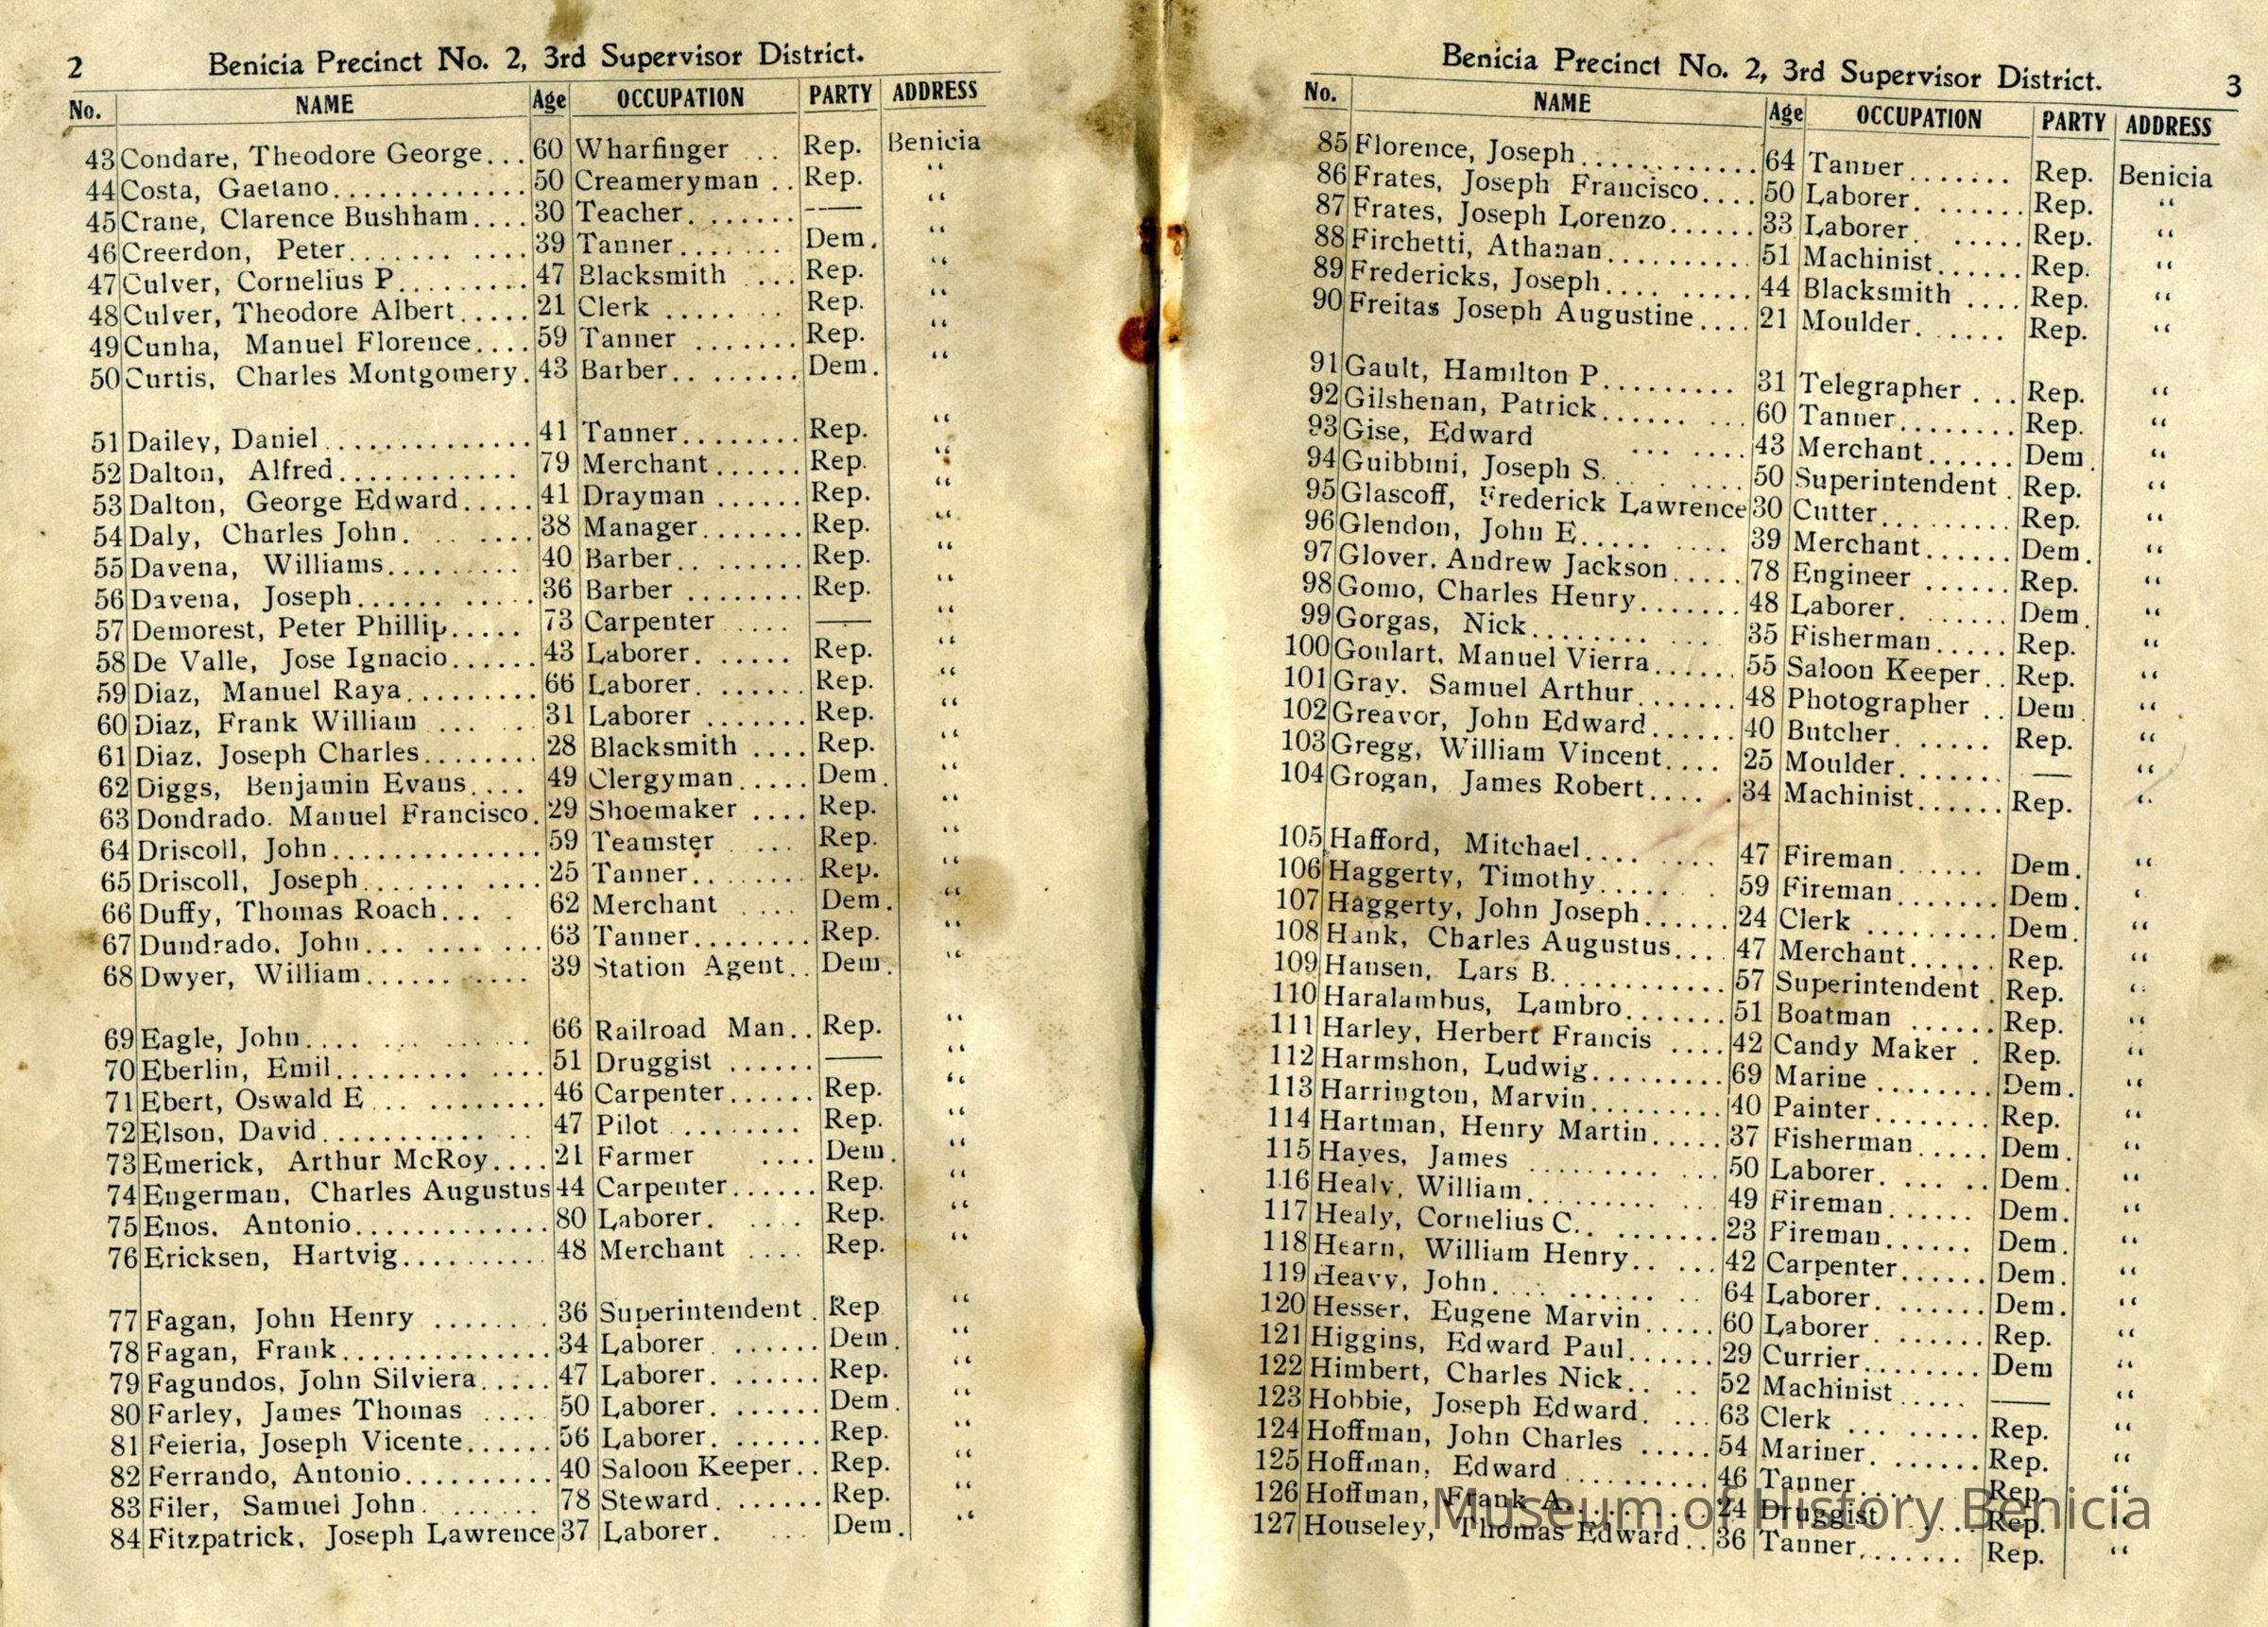 2 Benicia Precinct No. 2, 3rd Supervisor District.
No. NAME Age OCCUPATION PARTY ADDRESS
43 Condare, Theodore George... 60 Wharfinger ... Rep. Benicia
44 Costa, Gaetano............. 50 Creameryman .. Rep. “
45 Crane, Clarence Bushham.... 30 Teacher. ...... —— “
46 Creerdon, Peter....... .... 39 Tanner....... Dem. “
47 Culver, Cornelius P......... 47 Blacksmith .... Rep. “
48 Culver, Theodore Albert..... 21 Clerk ........ Rep. “
49 Cunha, Manuel Florence.... 59 Tanner ....... Rep. “
50 Curtis, Charles Montgomery. 43 Barber.. ...... Dem. “
51 Dailey, Daniel.............. 41 Tanner........ Rep. “
52 Dalton, Alfred............ 79 Merchant...... Rep. “
53 Dalton, George Edward..... 41 Drayman ...... Rep. “
54 Daly, Charles John. .. .... 38 Manager....... Rep. “
55 Davena, Williams......... 40 Barber.. ...... Rep. “
56 Davena, Joseph...... ..... 36 Barber ........ Rep. “
57 Demorest, Peter Phillip..... 73 Carpenter .... —— “
58 De Valle, Jose Ignacio...... 43 Laborer. ..... Rep. “
59 Diaz, Manuel Raya......... 66 Laborer. ...... Rep. “
60 Diaz, Frank William ... .. 31 Laborer ....... Rep. “
61 Diaz, Joseph Charles........ 28 Blacksmith .... Rep. “
62 Diggs, Benjamin Evans.... 49 Clergyman..... Dem. “
63 Dondrado. Manuel Francisco. 29 Shoemaker .... Rep. “
64 Driscoll, John.............. 59 Teamster .... Rep. “
65 Driscoll, Joseph....... .... 25 Tanner........ Rep. “
66 Duffy, Thomas Roach... . 62 Merchant .... Dem. “
67 Dundrado. John... .... ... 63 Tanner........ Rep. “
68 Dwyer, William...... .... 39 Station Agent.. Dem. “
69 Eagle, John.... ... ...... 66 Railroad Man.. Rep. “
70 Eberlin, Emil......... .... 51 Druggist ...... —— “
71 Ebert, Oswald E... ........ 46 Carpenter...... Rep. “
72 Elson, David........... .. 47 Pilot ........ Rep. “
73 Emerick, Arthur McRoy.... 21 Farmer .... Dem. “
74 Engerman, Charles Augustus 44 Carpenter...... Rep. “
75 Enos. Antonio............. 80 Laborer. .... Rep. “
76 Ericksen, Hartvig.......... 48 Merchant .... Rep. “
77 Fagan, John Henry ........ 36 Superintendent. Rep “
78 Fagan, Frank.............. 34 Laborer. ...... Dem. “
79 Fagundos, John Silviera..... 47 Laborer. ...... Rep. “
80 Farley, James Thomas .... 50 Laborer. ...... Dem. “
81 Feieria, Joseph Vicente...... 56 Laborer. ...... Rep. “
82 Ferrando, Antonio.......... 40 Saloon Keeper.. Rep. “
83 Filer, Samuel John. ...... 78 Steward. ...... Rep. “
84 Fitzpatrick, Joseph Lawrence 37 Laborer. ... Dem. “
Benicia Precinct No. 2, 3rd Supervisor District. 3
No. NAME Age OCCUPATION PARTY ADDRESS
85 Florence, Joseph............ 64 Tanner....... Rep. Benicia
86 Frates, Joseph Francisco.... 50 Laborer. ...... Rep. “
87 Frates, Joseph Lorenzo...... 33 Laborer. ..... Rep. “
88 Firchetti, Athanan.......... 51 Machinist...... Rep. “
89 Fredericks, Joseph.... ..... 44 Blacksmith .... Rep. “
90 Freitas Joseph Augustine.... 21 Moulder. ..... Rep. “
91 Gault, Hamilton P......... 31 Telegrapher ... Rep. “
92 Gilshenan, Patrick...... ... 60 Tanner........ Rep. “
93 Gise, Edward ... .... 43 Merchant...... Dem. “
94 Guibbini, Joseph S.. . .... 50 Superintendent. Rep. “
95 Glascoff, Frederick Lawrence 30 Cutter......... Rep. “
96 Glendon, John E..... .... 39 Merchant...... Dem. “
97 Glover. Andrew Jackson..... 78 Engineer ...... Rep. “
98 Gomo, Charles Henry....... 48 Laborer. ...... Dem. “
99 Gorgas, Nick........ ... 35 Fisherman..... Rep. “
100 Goulart. Manuel Vierra...... 55 Saloon Keeper.. Rep. “
101 Gray. Samuel Arthur....... 48 Photographer .. Dem. “
102 Greavor, John Edward...... 40 Butcher. ..... Rep. “
103 Gregg, William Vincent.... 25 Moulder. ...... —— “
104 Grogan, James Robert.... . 34 Machinist...... Rep. “
105 Hafford, Mitchael.... .... 47 Fireman ...... Dem. “
106 Haggerty, Timothy...... . 59 Fireman....... Dem. “
107 Haggerty, John Joseph...... 24 Clerk ......... Dem. “
108 Hank, Charles Augustus.... 47 Merchant...... Rep. “
109 Hansen, Lars B............. 57 Superintendent. Rep. “
110 Haralambus, Lambro....... 51 Boatman ...... Rep. “
111 Harley, Herbert Francis .... 42 Candy Maker . Rep. “
112 Harmshon, Ludwig......... 69 Marine ........ Dem. “
113 Harrington, Marvin......... 40 Painter........ Rep. “
114 Hartman, Henry Martin..... 37 Fisherman..... Dem. “
115 Hayes, James ......... ... 50 Laborer. ... .. Dem. “
116 Healy, William......... ... 49 Fireman...... Dem. “
117 Healy, Cornelius C.. ....... 23 Fireman...... Dem. “
118 Hearn, William Henry.. ... 42 Carpenter...... Dem. “
119 Heavy, John. .. ...... .. 64 Laborer. ...... Dem. “
120 Hesser, Eugene Marvin..... 60 Laborer. ...... Rep. “
121 Higgins, Edward Paul...... 29 Currier........ Dem “
122 Himbert, Charles Nick.. .. 52 Machinist ..... —— “
123 Hobbie, Joseph Edward. ... 63 Clerk ... ..... Rep. “
124 Hoffman, John Charles ..... 54 Mariner. ...... Rep. “
125 Hoffman, Edward .......... 46 Tanner.... Rep. “
126 Hoffman, Frank A......... 24 Druggist ...... Rep. “
127 Houseley, Thomas Edward.. 36 Tanner....... Rep. “
Museum of History Benicia